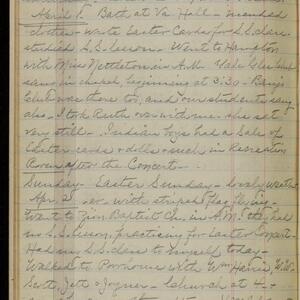 April 1. Bath at Va. Hall - mended
clothes - wrote Easter Cards for S.S. class
studied S.S. lesson - Went to Hampton
with Miss Nettleton in A.M. Yale Glee Club
sang in chapel, beginning at 3:30 - Banjo
Club was there too, and our students sang
also. I took Ruth over with me. she sat
very still - Indian boys had a Sale of
Easter cards & dolls & such in Recreation
Room after the Concert -
Sunday - Easter Sunday - Lovely weath-
Apr. 2 er - with striped flag flying -
Went to Zion Baptist Ch. in A.M. they had
no S.S. lesson, practicing for Easter Concert -
Had my S.S. class to myself today -
Walked to Poorhouse with Wm Harris, W.W.
Scott, Jett & Joyner - Church at 4 -